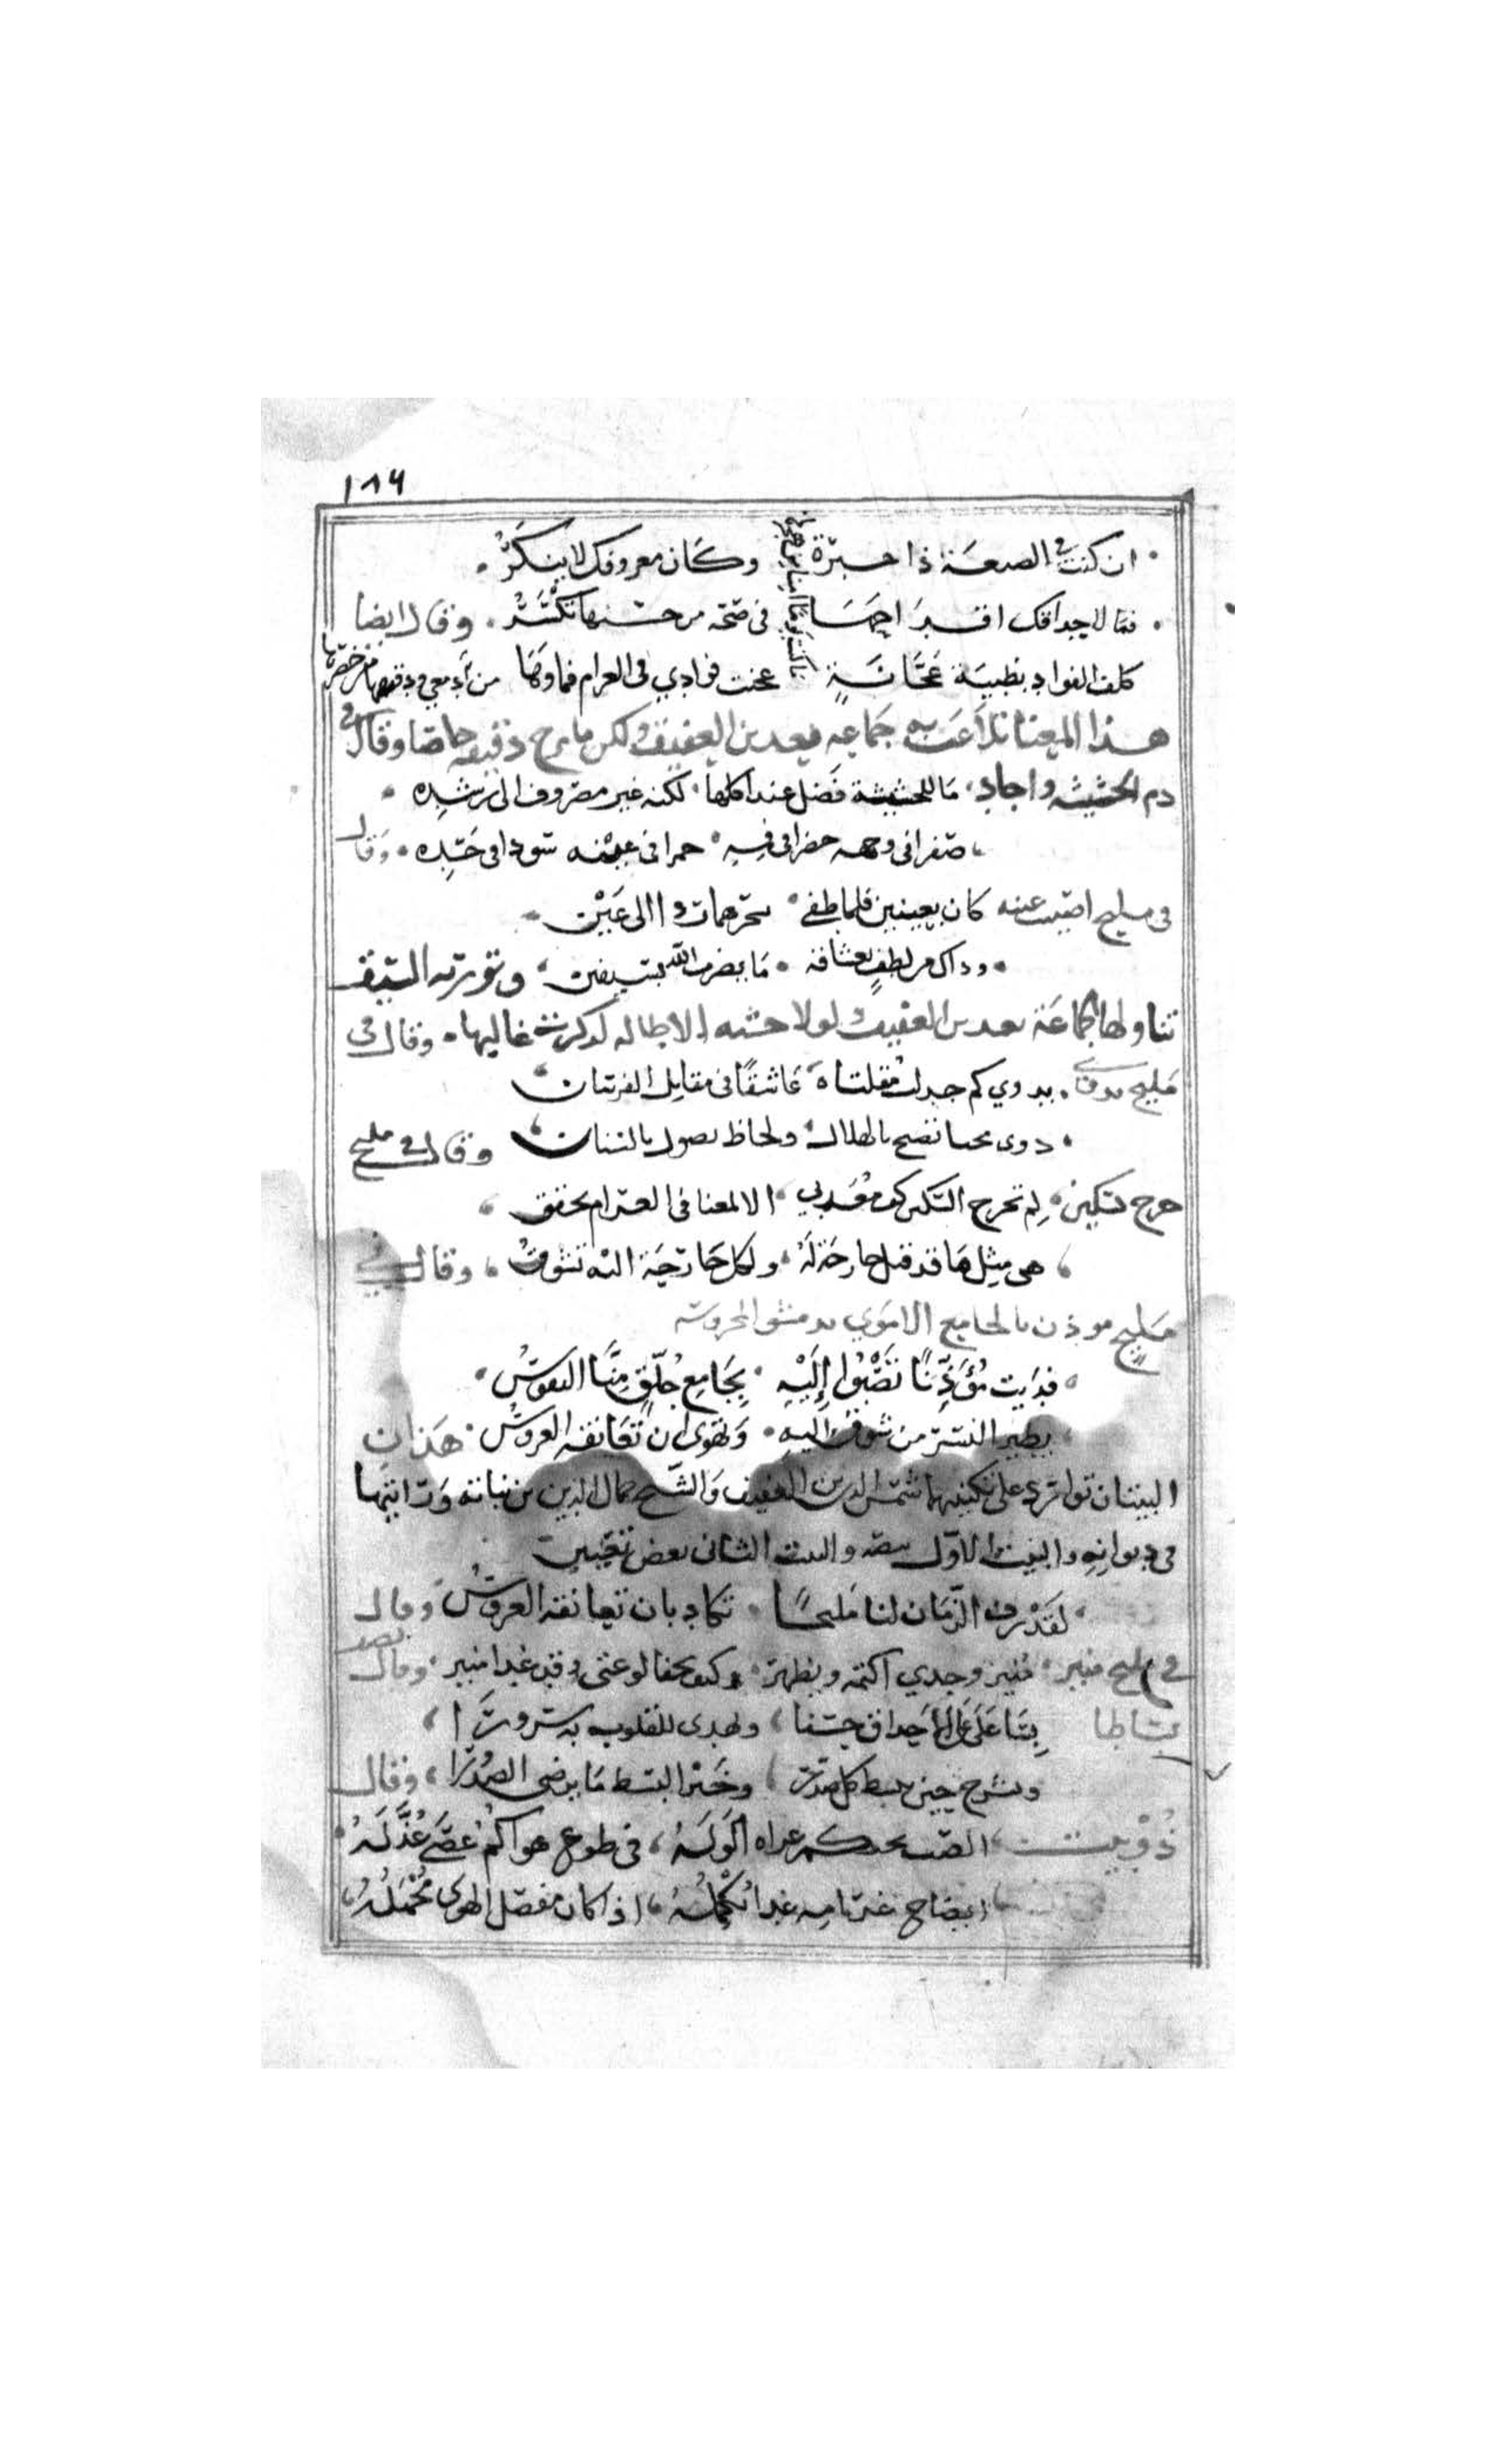 ١٨٦
ان كنت في الصنعة ذا خبرة وكان معروفك لا ينكر
فما لاجداقك في صحة من حسنها تكسر وقال ايضا
كلف الفواد بظبية عجانة عجنت فوادي في الغرام فما وكفا من ادمعي ودقيقها من خضرها
هذا المعنا تلاعب به جماعه بعد بن العفيف ولكن ما برح دقيقه خاصا وقال في
دم الحشيشه واجاد ما للحشيشة فضل عند اكلها لكنه غير مصروف الى رشده
صفرا في وجهه خضرا في فيه حمرا في عينه سودا في كبده وقال
في مليح اصيبت عينه كان بعينين فلما طغى سحرهما ردا الى عين
وذاك من لطف بعشاقه ما يضرب الله بسيفين وتورية السيف
تناولها جماعة بعد بن العفيف لولا خشيه الاطاله لذكرت غاليها وقال في
مليح بدوي بدوي كم جدلت مقلتاه عاشقا في مقاتل الفرسان
ذوي محيا تصيح يا لهلال ولحاظ يصول بالسنان وقال في مليح
جرح بسكين لم تجرح السكين كف معذبي الا لمعنا في الغرام محقق
هي مثل ما قد قيل جارحة له ولكل جارحة اليه تشوق وقال في
مليح موذن بالجامع الاموي بدمشق المحروسه
فديت مؤذنا تصبوا إليه بجامع جلق منا النفوس
يطير النسر من شوق اليه وتهوى ان تعانقه العروس هذان
البيتان تواترد على نكتيهما شمس الدين بن العفيف والشيخ جمال الدين بن نباته ورايتهما
في ديوانه والبيت الاول بنصه والبيت الثاني بعض تغيير
لقد زف الزمان لنا مليحا تكاد بان تعانقه العروس وقال
في مليح منير منير وجدي اكتمه ويظهر وكيف يخفا لوعتي وقد غدا منير وقال يصف
بساطا بسا على الاحداق حسنا ويهدى للقلوب به سرورا
ونشرح حين يبسط كل صدر وخير البسط ما يرضى الصدرا وقال
ذوبيت الصب بحكم عراه الوله في طوع هواكم عصى عذله
ايضاح غرامه غدا تكمله اذا كان مفصل الهوى مجمله